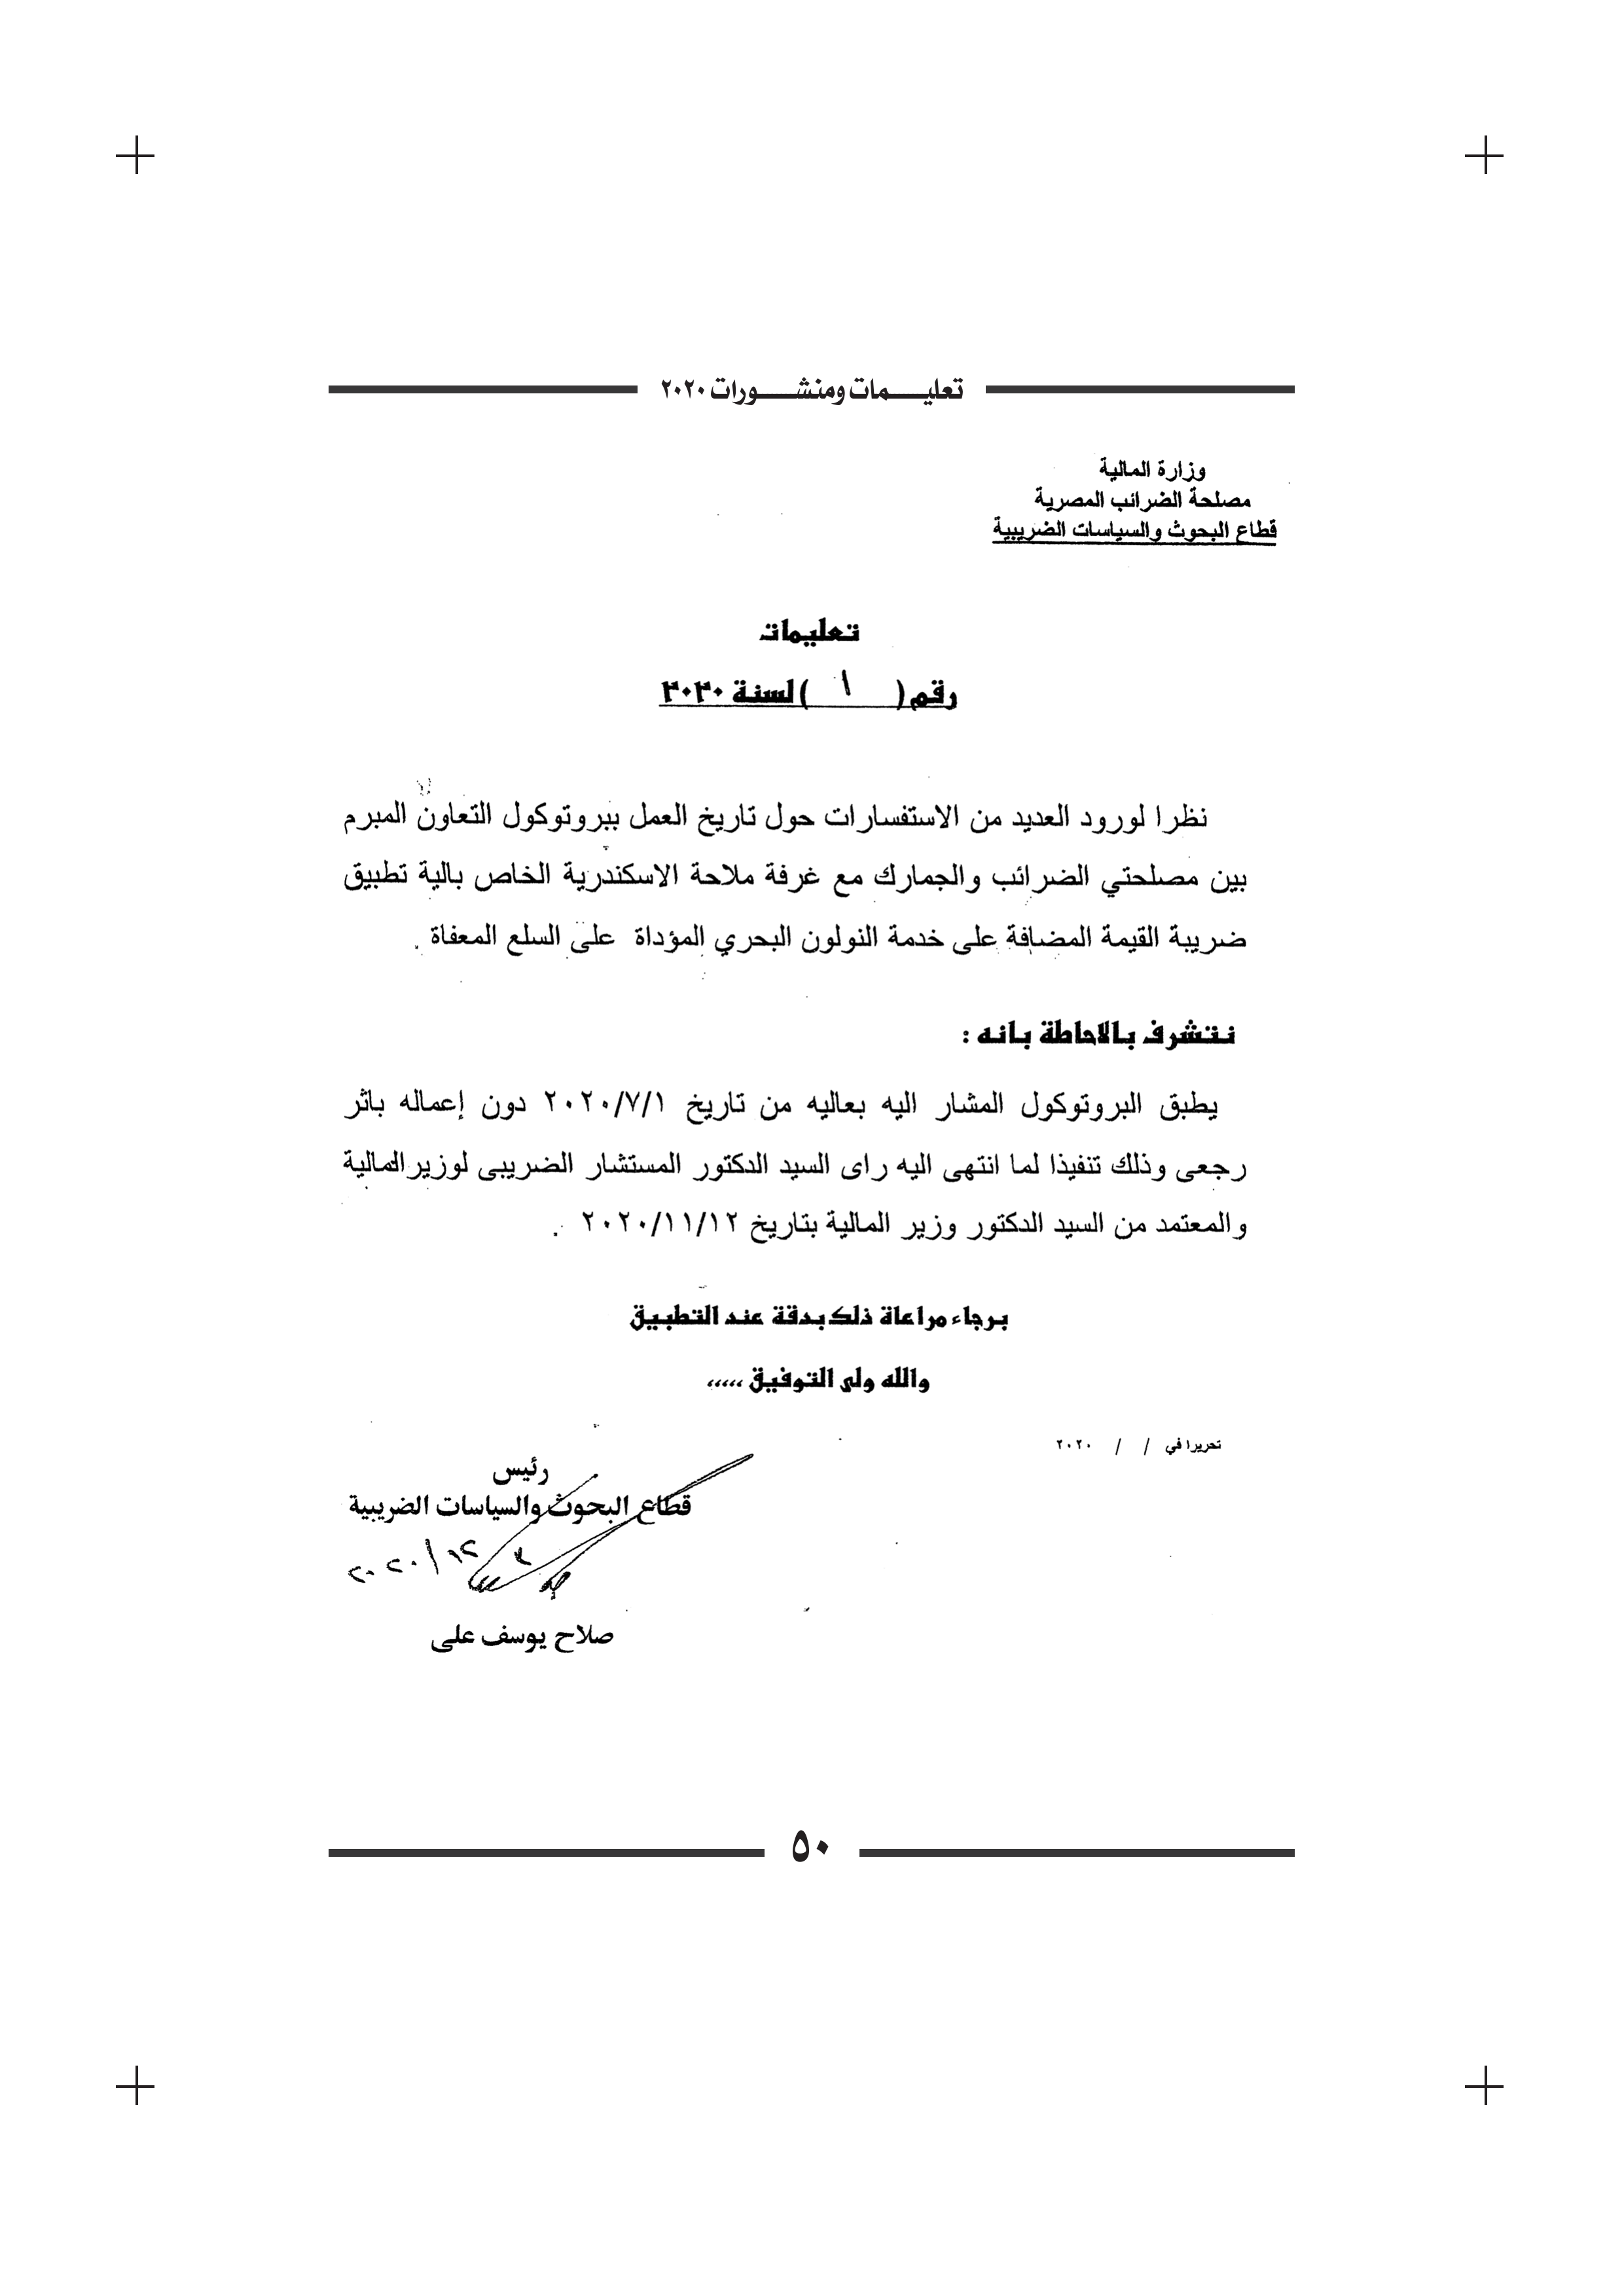 تعليمات ومنشورات ٢٠٢٠
وزارة المالية
مصلحة الضرائب المصرية
قطاع البحوث والسياسات الضريبية
تعليمات
رقم ( ١ ) لسنة ٢٠٢٠
نظرا لورود العديد من الاستفسارات حول تاريخ العمل ببروتوكول التعاون المبرم
بين مصلحتي الضرائب والجمارك مع غرفة ملاحة الاسكندرية الخاص بالية تطبيق
ضريبة القيمة المضافة على خدمة النولون البحري المؤداة على السلع المعفاة .
نتشرف بالاحاطة بانه :
يطبق البروتوكول المشار اليه بعاليه من تاريخ ٢٠٢٠/٧/١ دون إعماله باثر
رجعى وذلك تنفيذا لما انتهى اليه راى السيد الدكتور المستشار الضريبى لوزير المالية
والمعتمد من السيد الدكتور وزير المالية بتاريخ ٢٠٢٠/١١/١٢ .
برجاء مراعاة ذلك بدقة عند التطبيق
والله ولى التوفيق ،،،،،
تحريرا في / / ٢٠٢٠
رئيس
قطاع البحوث والسياسات الضريبية
صلاح يوسف على
٥٠